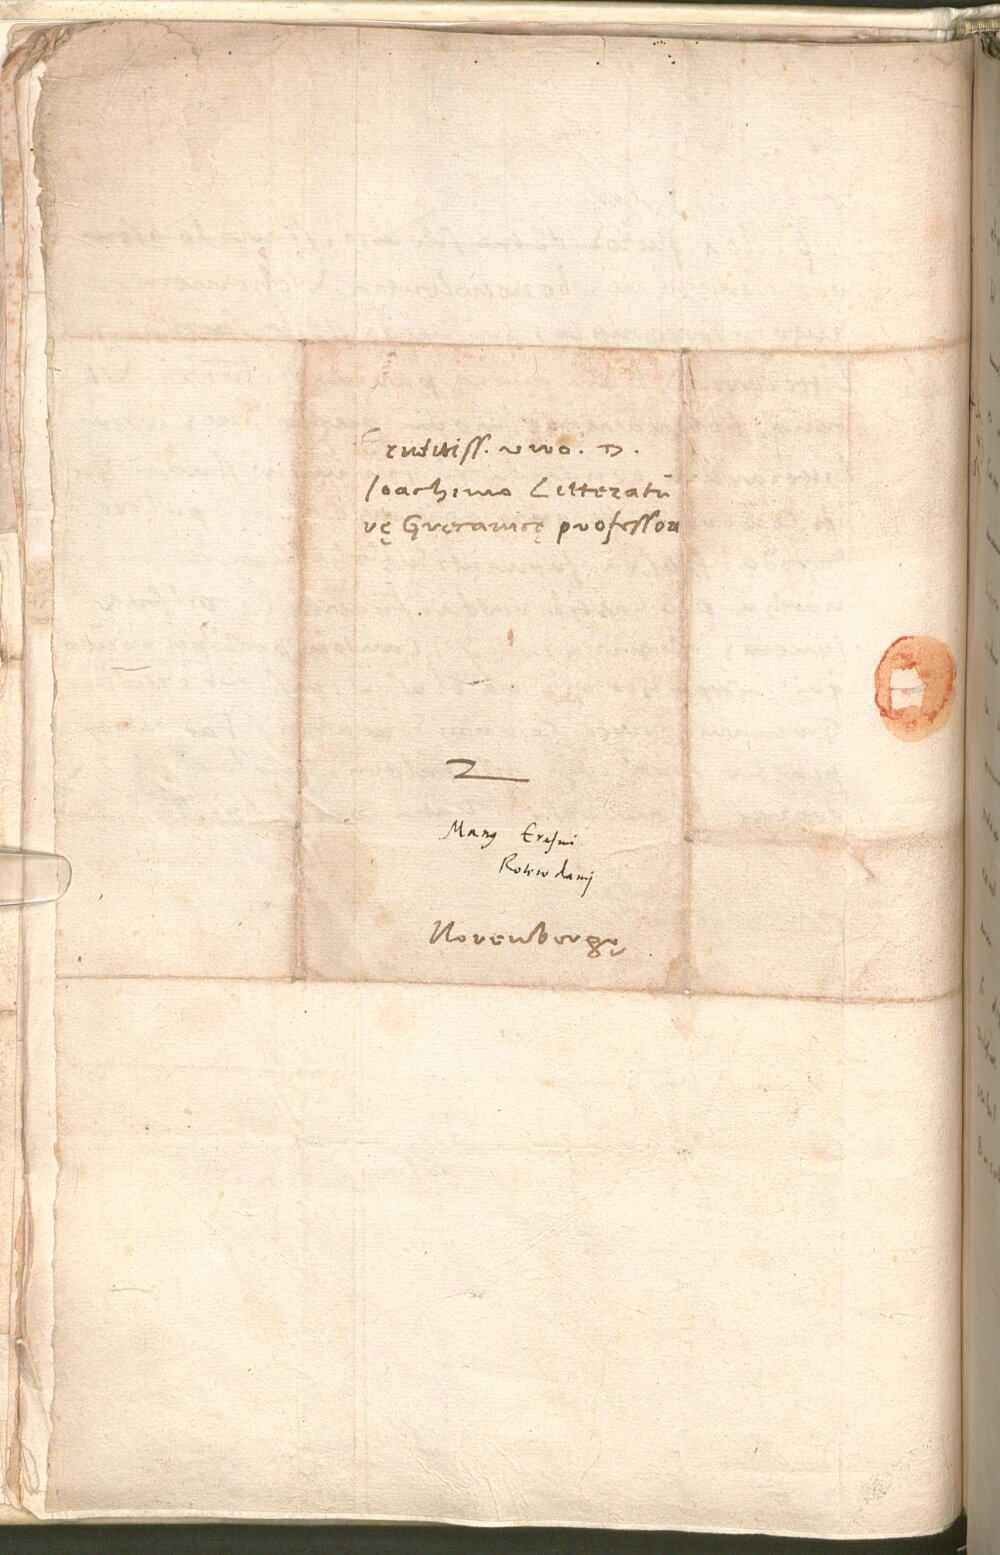 Eruditiss. viro. D.
Ioachimo Litteratu
rę Gręcanicę professori
Manꝰ Erasmi
Roterodamj
Norenbergę